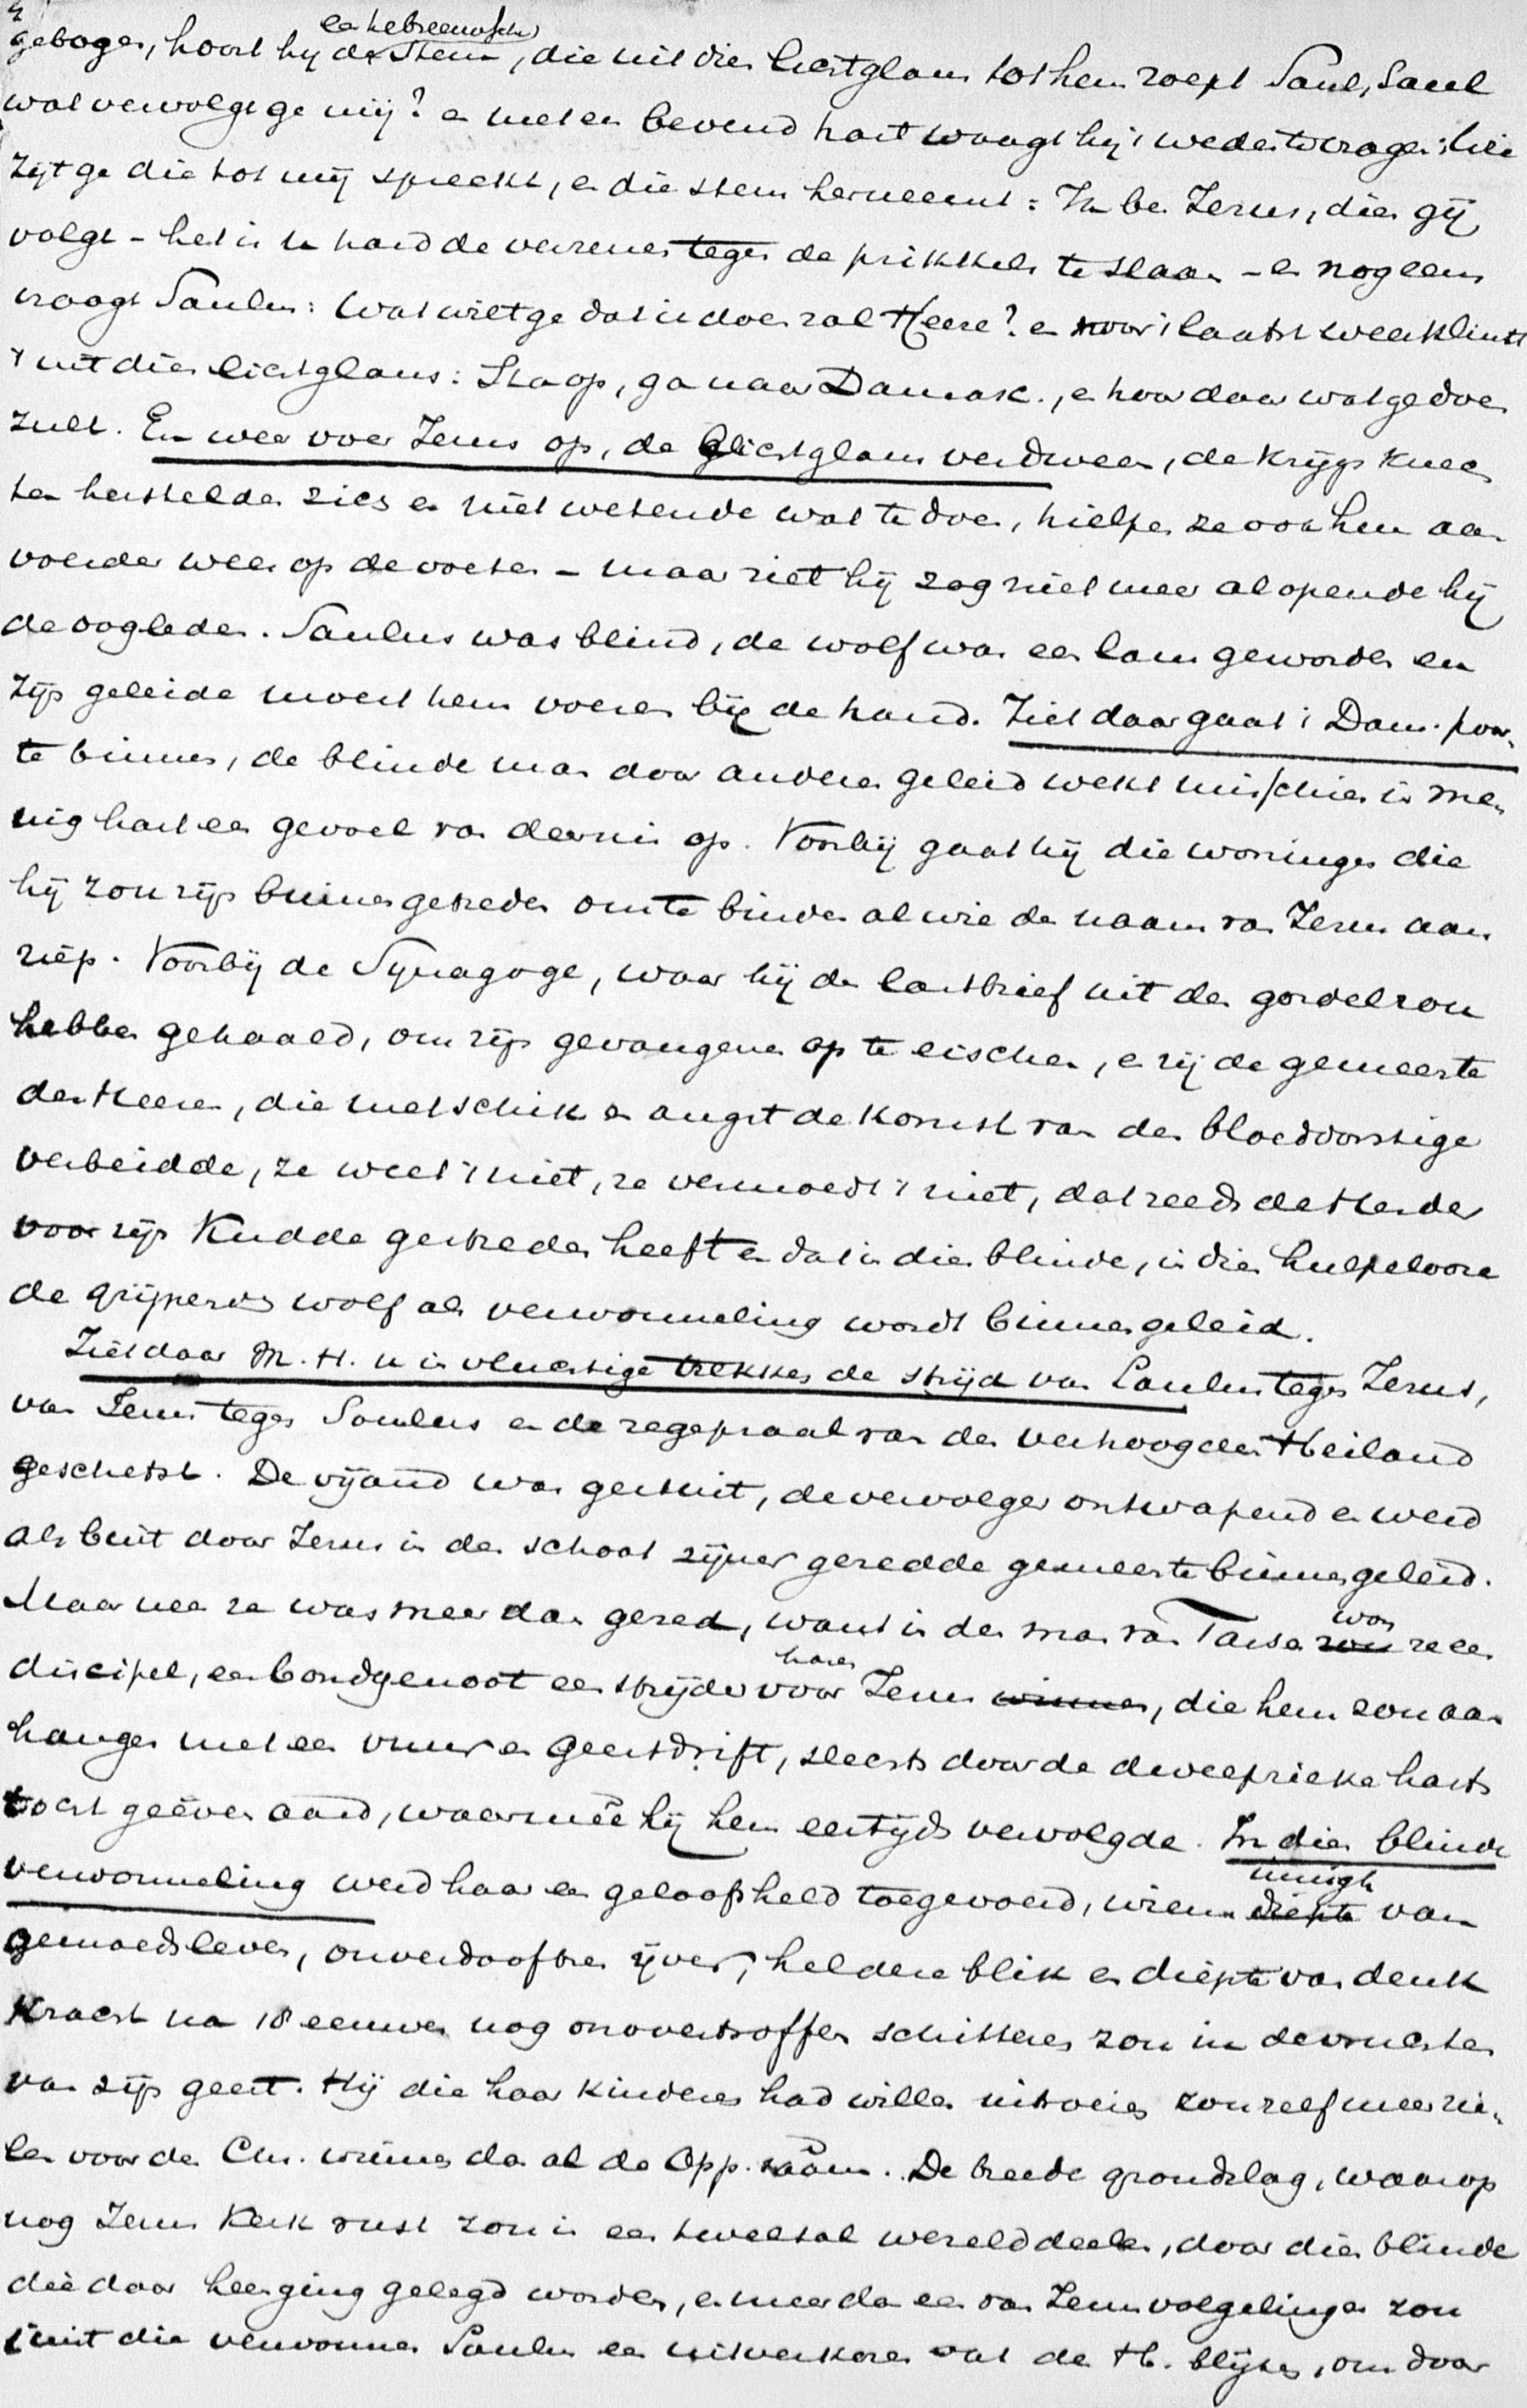 gebogen, hoort hij de een hebreeuwsche Stem, die uit dien lichtglans tot hem roept Saul, Saul
wat vervolgt ge mij? en met een bevend hart waagt hij 't weder te vragen: Wie
zijt ge die tot mij spreekt, en die stem herneemt: Ik ben Jezus, dien gij
volgt – het is u hard de verzenen tegen de prikkels te slaan – en nog eens
vraagt Saulus: Wat wilt ge dat ik doen zal Heere? en voor 't laatst weerklinkt
't uit dien lichtglans: Sta op, ga naar Damask., en hoor daar wat ge doen
zult. En weer voer Jezus op, de lichtglans verdween, de krijgsknech
ten herstelden zich en niet wetende wat te doen, hielpen ze ook hun aan
voerder weer op de voeten – maar ziet hij zag niet meer al opende hij
de oogleden. Saulus was blind, de wolf was een lam geworden en
zijn geleide moest hem voeren bij de hand. Ziet daar gaat 't Dam. poor-
te binnen, de blinde man door anderen geleid wekt misschien in me-
nig hart een gevoel van deernis op. Voorbij gaat hij die woningen die
hij zou zijn binnengetreden om te binden al wie den naam van Jezus aan
riep. Voorbij de Synagoge, waar hij den lastbrief uit den gordel zou
hebben gehaald, om zijn gevangenen op te eischen, en zij de gemeente
des Heeren, die met schrik en angst de komst van den bloeddorstige
verbeidde, ze weet 't niet, ze vermoedt 't niet, dat reeds de Herder
voor zijn Kudde gestreden heeft en dat in dien blinde, in dien hulpelooze
de grijpende wolf als verwonneling wordt binnengeleid.
Ziet daar M. H. u in vluchtige trekken de strijd van Saulus tegen Jezus,
van Jezus tegen Saulus en de zegepraal van den verhoogden Heiland
geschetst. De vijand was gestuit, de vervolger ontwapend en werd
als buit door Jezus in den schoot zijner geredde gemeente binnengeleid.
Maar nee ze was meer dan gered, want in den man van Tarsen zou won ze een
discipel, een bondgenoot een strijder voor haren Jezus winnen, die hem zou aan
hangen met een vuur en geestdrift, slechts door de dweepzieke harts
tocht geëvenaard, waarmeê hij hem eertijds vervolgde. In dien blinde
verwonneling werd haar een geloofsheld toegevoerd, wiens diepte innigh van
gemoedsleven, onverdoofbre ijver, heldere blik en diepte van denk
kracht na 18 eeuwen nog onovertroffen schitteren zou in de vruchten
van zijn geest. Hij die haar kinderen had willen uitroeien zou zelf meer zie-
len voor den Chr. winnen dan al de App. saâm. De breede grondslag, waarop
nog Jezus Kerk rust zou in een tweetal werelddeelen, door dien blinde
die daar heenging gelegd worden, en meer dan een van Jezus volgelingen zou
juist die verwonnen Saulus een uitverkoren vat des H. blijken, om door